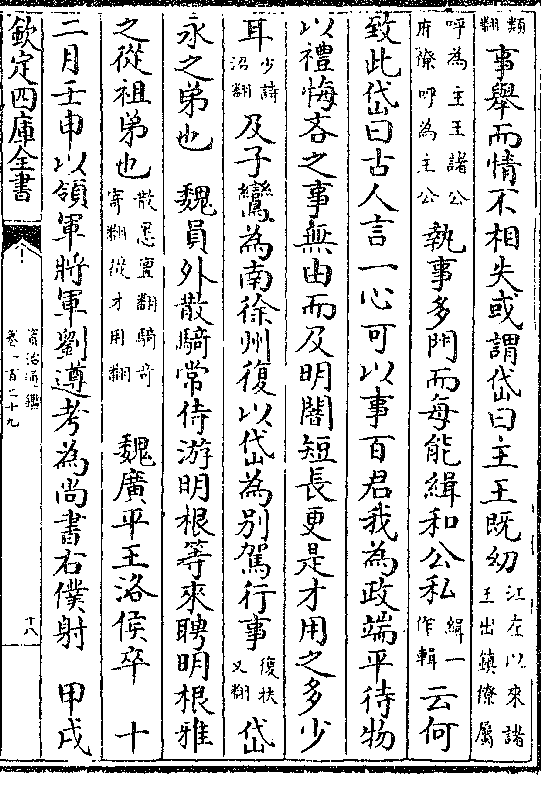 類翻事舉而情不相失或謂岱曰主王既幼江左以來諸王出鎮僚屬
呼為主王諸公府僚呼為主公執事多門而每能緝和公私緝一作輯云何
致此岱曰古人言一心可以事百君我為政端平待物
以禮悔吝之事無由而及明闇短長更是才用之多少
耳少詩沼翻及子鸞為南徐州復以岱為別駕行事復扶又翻岱
永之弟也　魏員外散騎常侍游明根等來聘明根雅
之從祖弟也散悉亶翻騎奇寄翻從才用翻　魏廣平王洛侯卒　十
二月壬申以領軍將軍劉遵考為尚書右僕射　甲戌
欽定四庫全書
資治通鑑
卷一百二十九
十八